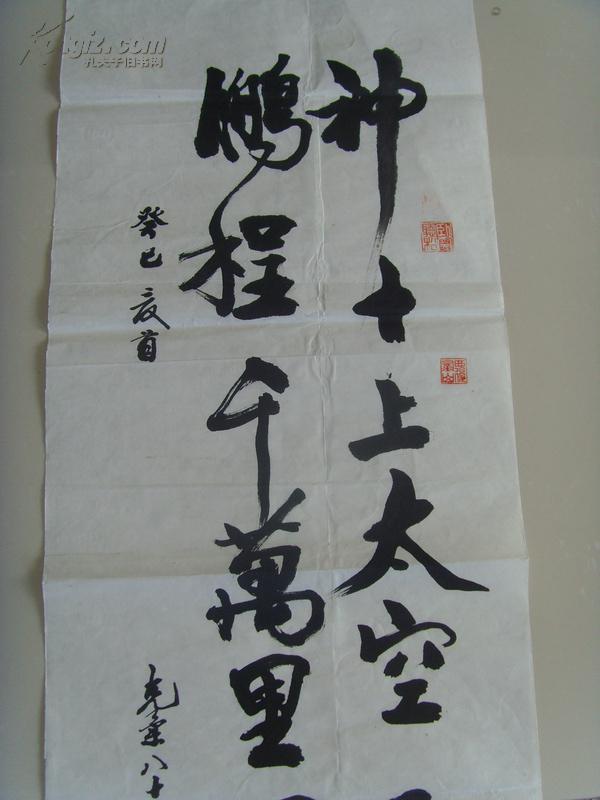 神十上太空
鹏程千萬里
癸巳夏首
克業八十
Kongfz.com
孔夫子旧书网